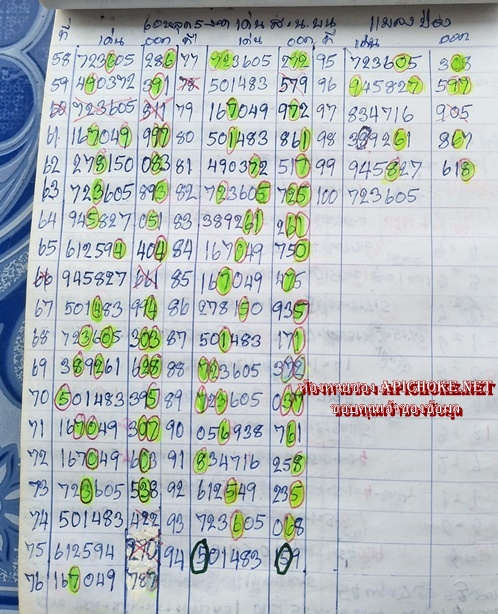 ที่ เด่น ออก ที่ เด่น ออก ที่ เด่น ออก
58 723605 286 77 723605 272 95 723605 308
59 490372 391 78 501483 579 96 945827 577
60 723605 811 79 167049 972 97 834716 905
61 167049 997 80 501483 861 98 389261 867
62 278150 083 81 490372 517 99 945827 618
63 723605 893 82 723605 725 100 723605
64 945827 051 83 389261 261
65 612594 404 84 167049 750
66 945827 661 85 167049 475
67 501483 994 86 278150 935
68 723605 303 87 501483 171
69 389261 628 88 723605 372
70 501483 395 89 723605 037
ห้องหวยของ APICHOKE.NET
ขอบคุณเจ้าของข้อมูล
71 167049 307 90 056938 761
72 167049 603 91 834716 258
73 723605 538 92 612549 235
74 501483 422 93 723605 068
75 612594 270 94 501483 159
76 167049 787